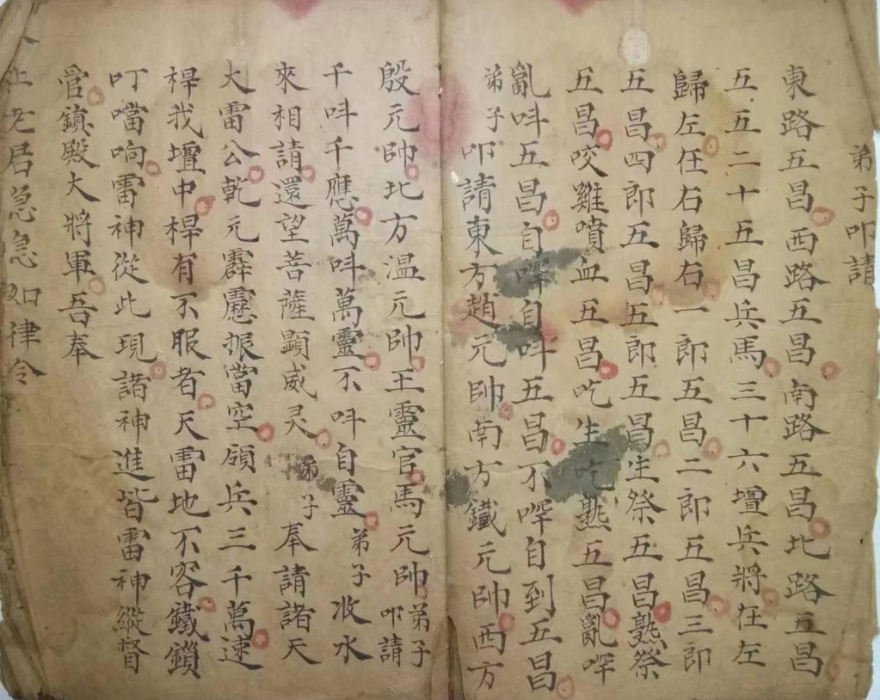 弟子叩請
東路五昌西路五昌南路五昌北路五昌
五五二十五昌兵馬三十六壇兵將在左
歸左在右歸右一郎五昌二郎五昌三郎
五昌四郎五昌五郎五昌生祭五昌熟祭
五昌咬雞噴血五昌吃生吃熟五昌亂㖾
亂呌五昌自㖾自呌五昌不㖾自到五昌
弟子叩請東方趙元帥南方鐵元帥西方
殷元帥北方温元帥王靈官馬元帥弟子叩請
千呌千應萬呌萬靈不呌自靈弟子收水
來相請還望菩薩顯威灵弟子奉請諸天
大雷公乾元霹靂振當空領兵三千萬速
㖾我壇中㖾有不服者天雷地不容鐵鎖
叮噹响雷神從此現諸神進皆雷神縱督
管鎮殿大將軍吾奉
上老君急急如律令